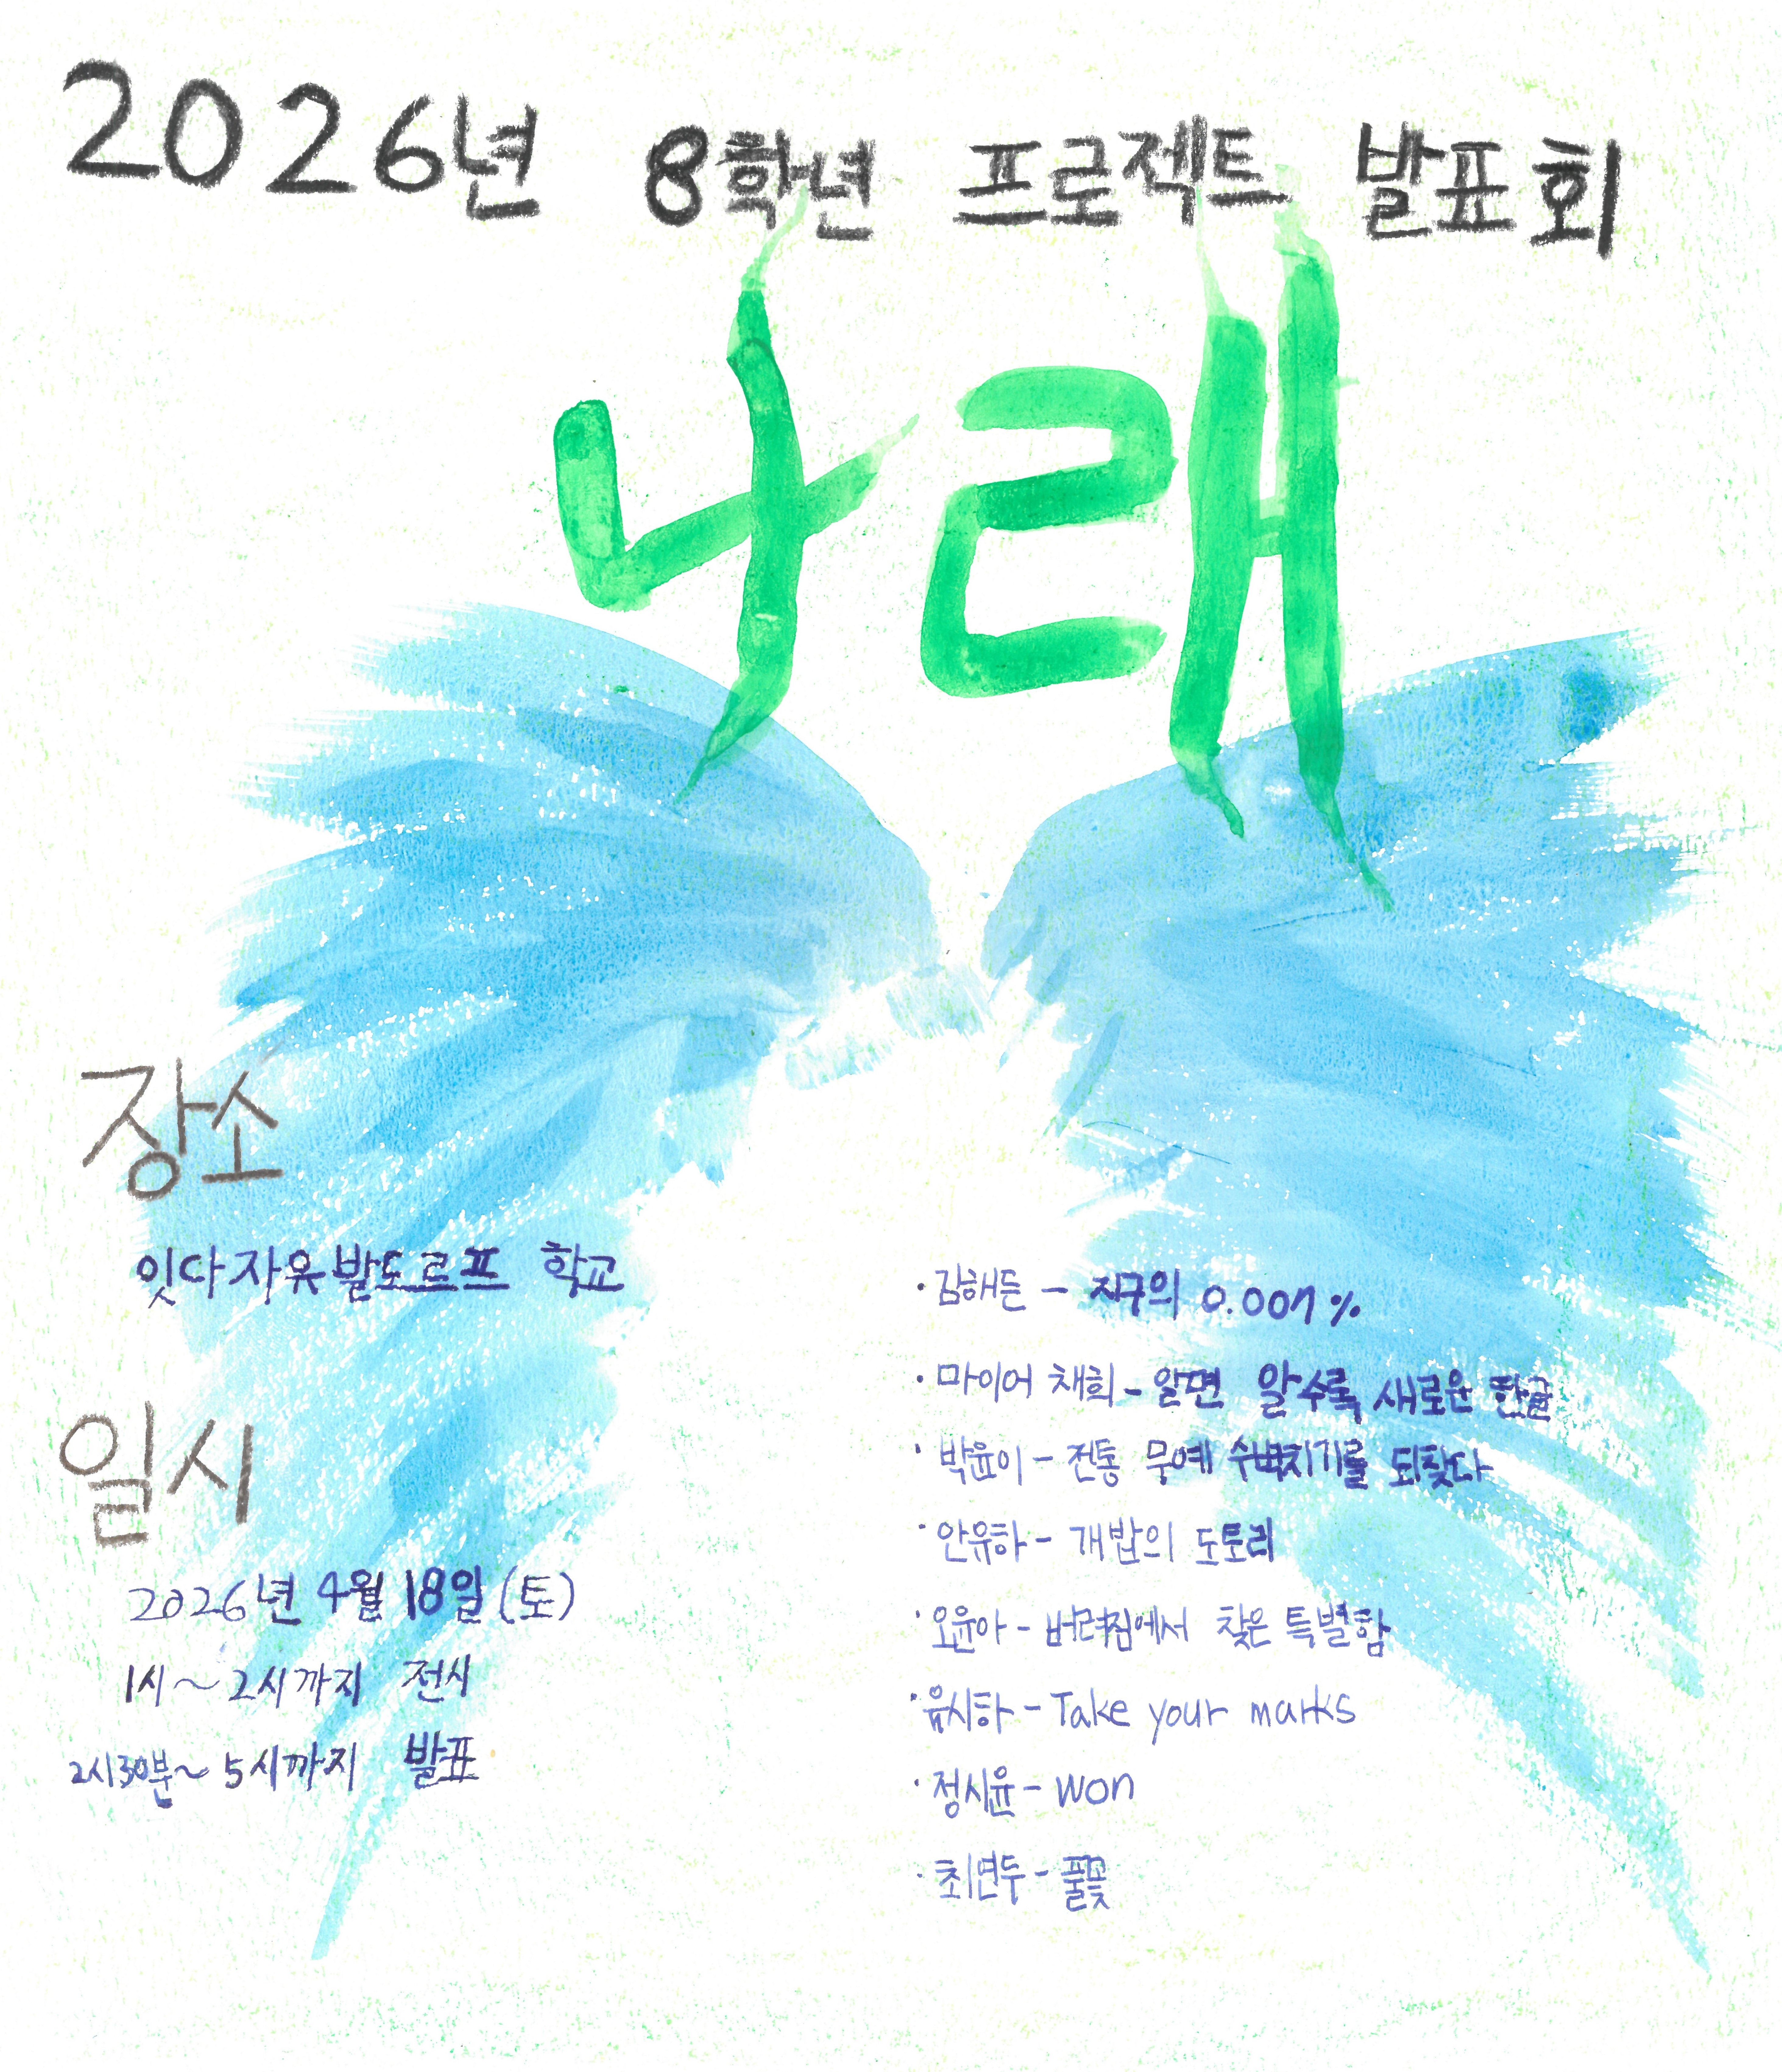 2026년 8학년 프로젝트 발표회
나래
장소
잇다자유발도르프 학교
일시
2026년 4월 18일 (토)
1시~2시까지 전시
2시30분~5시까지 발표
· 김해든 - 지구의 0.007%
· 마이어 채희 - 알면 알수록 새로운 한글
· 박윤이 - 전통 무예 수벽치기를 되찾다
· 안유하 - 개밥의 도토리
· 오윤아 - 버려짐에서 찾은 특별함
· 윤시하 - Take your marks
· 정시윤 - won
· 최연두 - 풀꽃